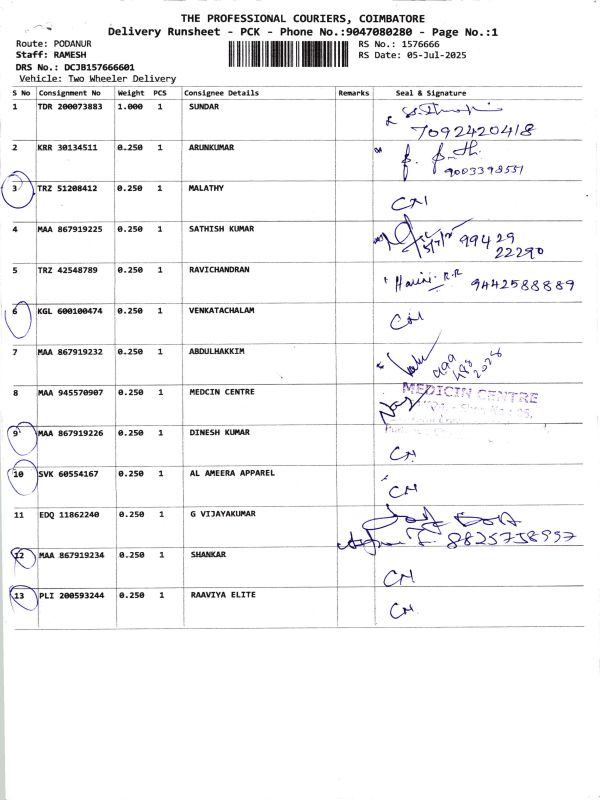 THE PROFESSIONAL COURIERS, COIMBATORE
Delivery Runsheet - PCK - Phone No.:9047080280 - Page No.:1
Route: PODANUR RS No.: 1576666
Staff: RAMESH RS Date: 05-Jul-2025
DRS No.: DCJB157666601
Vehicle: Two Wheeler Delivery
S No Consignment No Weight PCS Consignee Details Remarks Seal & Signature
1 TDR 200073883 1.000 1 SUNDAR
7092420418
2 KRR 30134511 0.250 1 ARUNKUMAR
9003398551
3 TRZ 51208412 0.250 1 MALATHY
4 MAA 867919225 0.250 1 SATHISH KUMAR 99429
22290
5 TRZ 42548789 0.250 1 RAVICHANDRAN Harini. R.R 9442588889
6 KGL 600100474 0.250 1 VENKATACHALAM
7 MAA 867919232 0.250 1 ABDULHAKKIM
8 MAA 945570907 0.250 1 MEDCIN CENTRE MEDICIN CENTRE
9 MAA 867919226 0.250 1 DINESH KUMAR
CN
10 SVK 60554167 0.250 1 AL AMEERA APPAREL
CN
11 EDQ 11862240 0.250 1 G VIJAYAKUMAR
12 MAA 867919234 0.250 1 SHANKAR
CN
13 PLI 200593244 0.250 1 RAAVIYA ELITE
CN